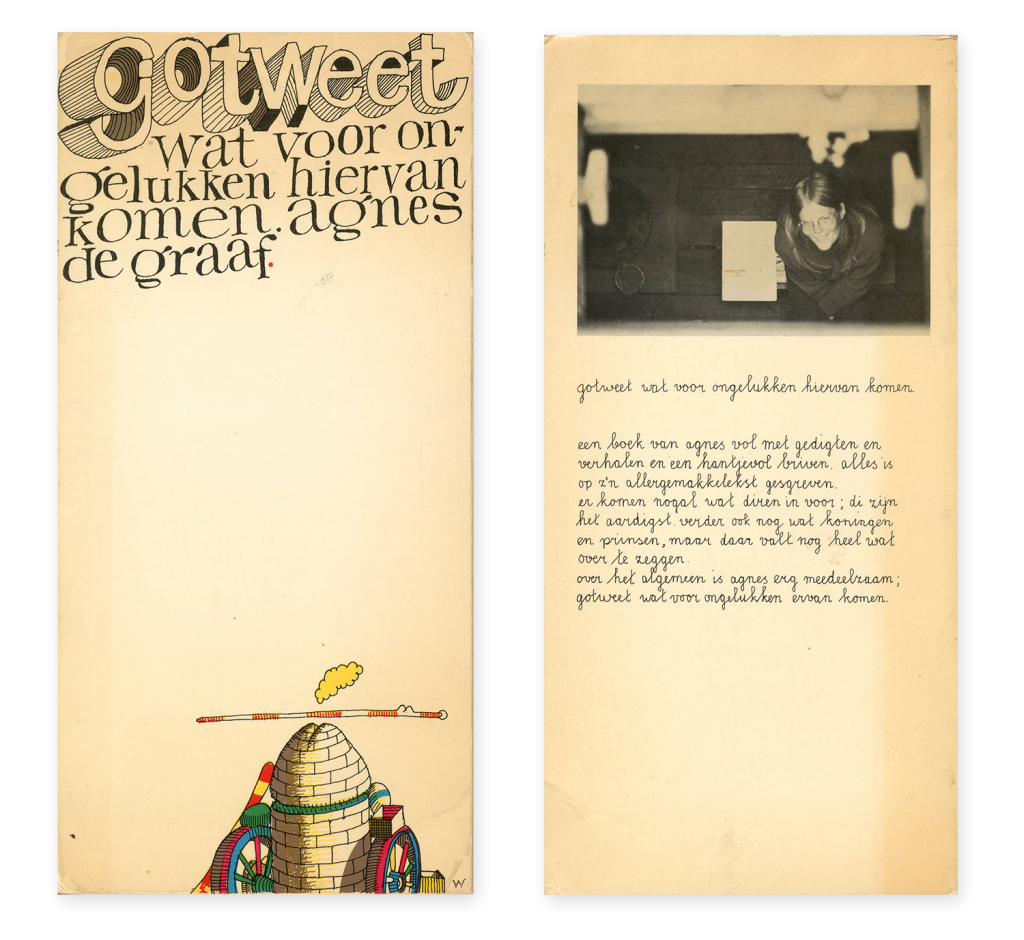 gotweet
wat voor on-
gelukken hiervan
komen. agnes
de graaf.
W
gotweet wat voor ongelukken hiervan komen.
een boek van agnes vol met gedigten en
verhalen en een hantjevol briven. alles is
op z'n allergemakkelekst gesgreven.
er komen nogal wat diren in voor; di zijn
het aardigst. verder ook nog wat koningen
en prinsen, maar daar valt nog heel wat
over te zeggen.
over het algemeen is agnes erg meedeelzaam;
gotweet wat voor ongelukken ervan komen.